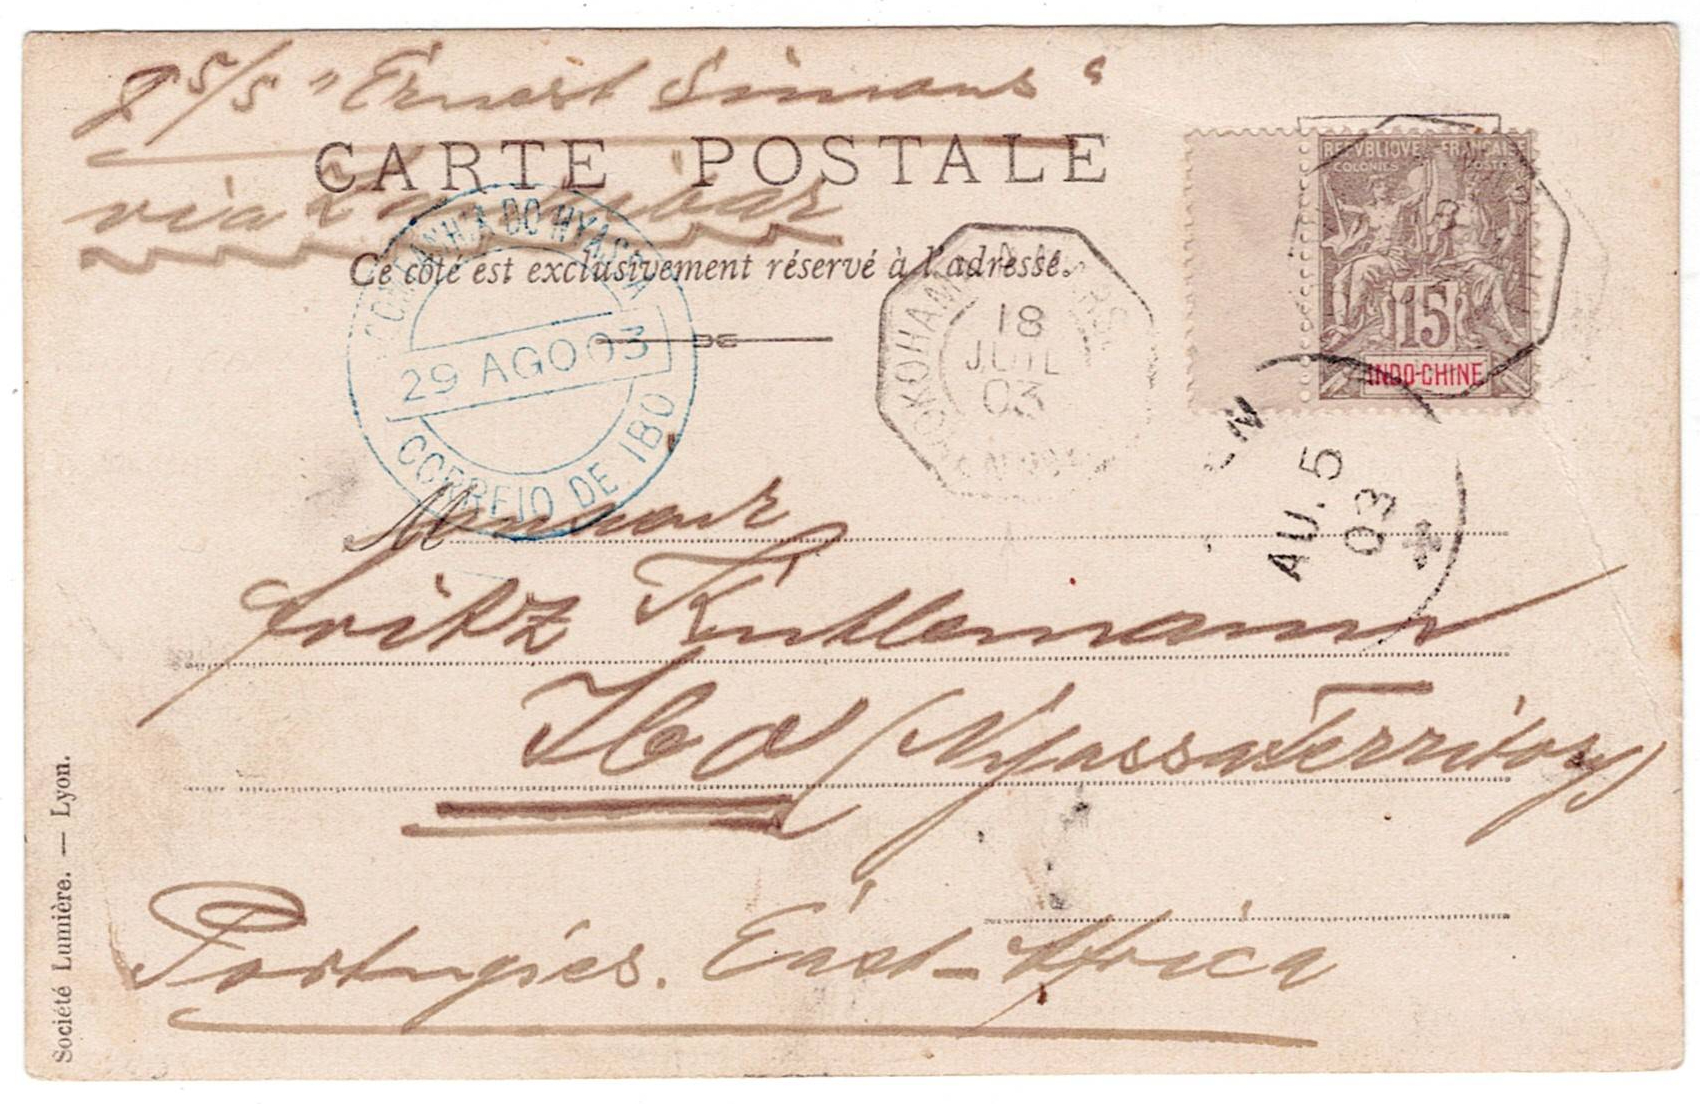 P S/S "Ernest Simons"
CARTE POSTALE
via Zanzibar
Ce côté est exclusivement réservé à l'adresse.
REPVBLIQVE FRANÇAISE
COLONIES POSTES
15
INDO-CHINE
COMPANHIA DO NYASSA
29 AGO 03
CORREIO DE IBO
YOKOHAMA
18
JUIL
03
AU. 5
03
Monsieur
Fritz
Ibo (Nyassa Territory)
Portugies. East-Africa
Société Lumière. — Lyon.